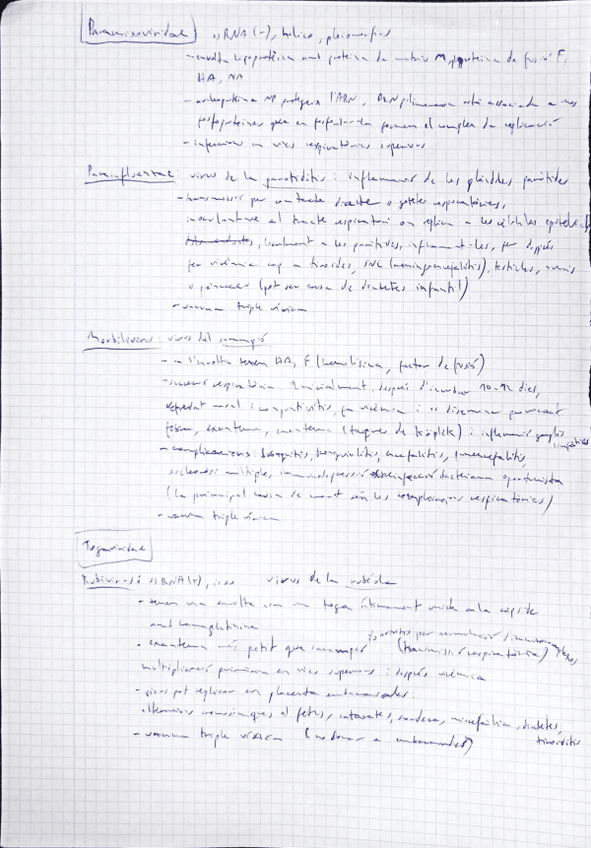 Paramixoviridae ssRNA(-), hèlico, pleiomorfics
- envolta lipoprotèica amb proteïna de matriu M, proteïna de fusió F,
HA, NA
- nucleoproteïna NP protegeix l'ARN, ARN polimerasa està associada a
fosfoproteïnes que en formen el complex de replicació
- infeccions en vies respiratòries superiors
Parainfluenzae: virus de la parotiditis: inflamació de les glàndules paròtides
- transmissió per contacte directe o gotetes respiratòries,
inoculant-se al tracte respiratori on replica a les cèl·lules epitelials
, localment a les paròtides, inflamant-les, per després
fer virèmia cap a tiroides, SNC (meningoencefalitis), testicles, ovaris
o pàncrees (pot ser causa de diabetes infantil)
- vacuna triple vírica
Morbilivirus: virus del sarampió
- a l'envolta tenen HA, F (hemolisina, factor de fusió)
- respiratòria inicialment, després d'incubar 10-12 dies,
refredat nasal i conjuntivitis, fa virèmia i es disemina provocant
febre, exantema, enantema (taques de Koplik) i inflamació ganglis
limfàtics
- complicacions: bronquitis, encefalitis,
esclerosi múltiple, immunodepressió infecció bacteriana oportunista
(la principal causa de mort són les complicacions respiratòries)
- vacuna triple vírica
Togaviridae
Rubivirus: ssRNA(+), icos virus de la rubèola
- tenen una envolta com un toga íntimament unida a la càpside
amb hemaglutinina
- exantema més petit que sarampió (transmissió respiratòria)
artritis per acumulació d'immunocomplexos
multiplicació primària en vies superiors i després virèmia
- virus pot replicar en placenta embarassades:
alteracions cromosòmiques al fetus, cataractes, sordesa, microcefàlia, diabetes,
tiroiditis
- vacuna triple vírica (no donar a embarassades)